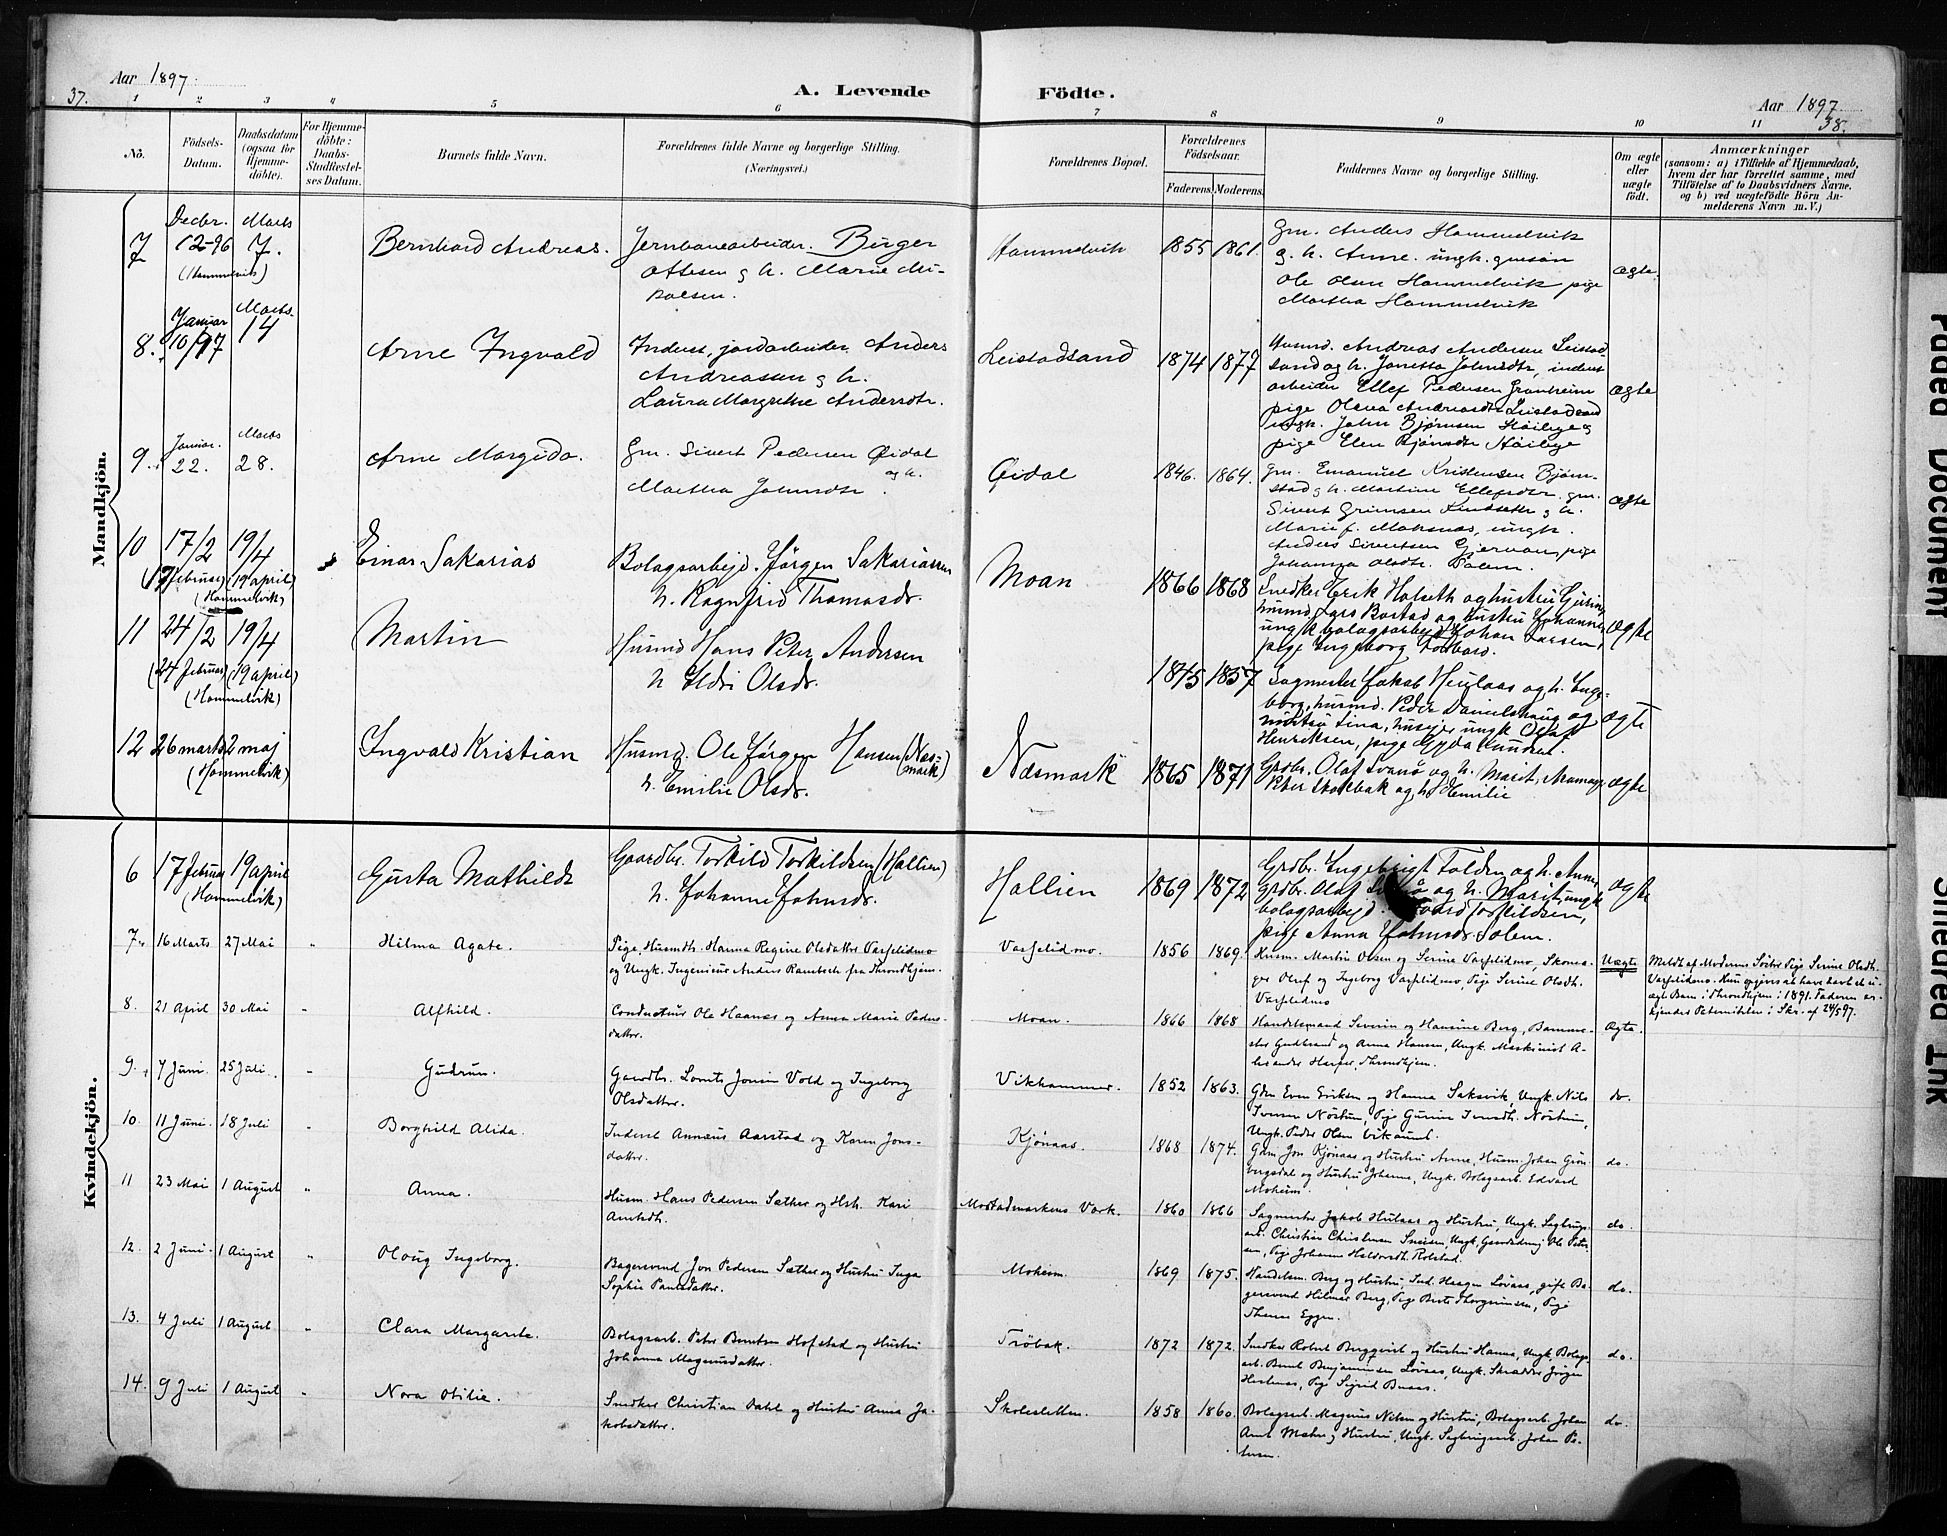 Aar 1897.
A. Levende Födte.
Aar 1897
37.
38.
1 2 3 4 5 6 7 8 9 10 11
No.
Födsels-Datum.
Daabsdatum (ogsaa for Hjemme-döbte).
For Hjemme-döbte: Daabs-Stadfæstel-ses Datum.
Barnets fulde Navn.
Forældrenes fulde Navne og borgerlige Stilling.
(Næringsvei.)
Forældrenes Bopæl.
Forældrenes Födselsaar.
Faderens. Moderens.
Faddernes Navne og borgerlige Stilling.
Om ægte eller uægte födt.
Anmærkninger
(saasom: a) i Tilfælde af Hjemmedaab, hvem der har forrettet samme, med Tilföielse af to Daabsvidners Navne, og b) ved uægtefödte Börn An-melderens Navn m. V.)
Mandkjön.
7 Decbr. 12-96 (Hommelvik) Marts 7. Bernhard Andreas. Jernbanearbeider. Birger
Ottesen g h. Marie Mi-
kalsen.
Hommelvik 1855 1861. Gm. Anders Hommelvik
g. h. Anne. ungk. gmsøn
Ole Olsen Hommelvik pige
Martha Hommelvik
ægte.
8. Januar 10/97 Marts. 14 Arne Ingvald Inderst, jordarbeider Anders
Andreassen g h.
Laura Margrethe Andersdtr.
Leistadsand 1874 1877 Husmd. Andreas Andersen Leistad-
sand og h. Jonetta Johnsdtr, inderst
arbeider Ellef Pedersen Granheim
pige Olava Andreasdtr Leistadsand
ungk. John Bjørnsen Høiby g
pige Elen Bjørnsdtr Høiby
ægte
9. Januar. 22. Marts 28. Arne Margido. Gm. Sivert Pedersen Øidal
og h.
Martha Johnsdtr.
Øidal 1846. 1864. Gm. Emanuel Kristensen Bjørn-
stad g h. Martine Ellefsdtr. gm.
Sivert Grimsen Lindseth g h.
Marie f. Moksnæs, ungk.
Anders Sivertsen Gjervan, pige
Johanna Olsdtr. Solem.
ægte
10 17/2 (17 februar) 19/4 (19 april) (Hommelvik) Einar Sakarias Bolagsarbejd. Jørgen Sakariassen
h. Ragnfrid Thomasdr.
Moan 1866 1868 Snedker Erik Halseth og hustru Gjertine,
husmd. Lars Bostad og hustru Johanne,
ungk bolagsarbejd Johan Larsen,
pige Ingeborg
ægte
11 24/2 (24 februar) 19/4 (19 april) (Hommelvik) Martin Husmd Hans Peter Andersen
h Ildri Olsdr.
1845 1857 Sagmester Jakob Heulaas og h. Inge-
borg, husmd. Peder Danielshaug og
hustru Lina, ungk Olaf
Henriksen, pige Gyda Knudsen.
ægte
12 26 marts 2 maj (Hommelvik) Ingvald Kristian Husmd. Ole Jørgen Hansen (Næs-
mark)
h. Emilie Olsdr.
Næsmark 1865 1871 Grdbr. Olaf Svanø og h. Marit,
Peter Stokbak og h. Emilie
ægte
Kvindekjön.
6 17 februar 19 april (Hommelvik) Gusta Mathilde Gaardbr. Torkild Torkildsen (Hallien)
h. Johanne Johnsdr.
Hallien 1869 1872 Grdbr. Ingebrigt Folden og h. Anne,
Grdbr. Olaf Svanø og h. Marit, ungk
bolagsarbejd. Torkildsen,
pige Anna Johnsdr. Solem.
ægte
7. 16 Marts 27 Mai " Hilma Agate. Pige, Husmdtr. Hanna Regine Olsdatter Varpelidmo
og Ungk. Ingeniør Anders Rambech fra Throndhjem.
Varpelidmo. 1856 1869. Husm. Martin Olsen og Serine Varpelidmo, Skoma-
ger Oluf og Ingeborg Varpelidmo, Pige Serine Olsdtr.
Varpelidmo
Uægte Meldt af Moderens Søster Pige Serine Olsdtr.
Varpelidmo. Hun opgives at have havt et u-
ægt Barn i Throndhjem i 1891. Faderen er-
kjender Paterniteten i Skr. af 24/5 97.
8. 21 April 30 Mai " Alfhild. Conductør Ole Haanæs og Anna Marie Peders-
datter.
Moan. 1866 1868 Handelsmand Severin og Hansine Berg, Banme-
ster Gudbrand og Anna Hansen, Ungk. Maskinist A-
lexander Harper, Throndhjem.
Ægte.
9. 7 Juni. 25 Juli. " Gudrun. Gaardbr. Lornts Jonsen Vold og Ingeborg
Olsdatter.
Vikhammer. 1852 1863. Gbr. Even Eriksen og Hanna Saksvik, Ungk. Nils
Iversen Nøstum, Pige Gurine Iversdtr. Nøstum,
Ungk. Peder Olsen Vikaunet.
do.
10. 11 Juni. 18 Juli " Borghild Alida. Inderst Annæus Aarstad og Karen Jons-
datter.
Kjønaas. 1868 1874. Gbm. Jon Kjønaas og Hustru Anne, Husm. Johan Grøn-
bergsdal og Hustru Johanna, Ungk. Bolagsarb. Edvard
Moheim.
do.
11 23 Mai 1 August " Anna. Husm. Hans Pedersen Sæther og Hstr. Kari
Arntsdtr.
Mostadmarkens Værk. 1860 1866 Sagmester Jakob Hulaas og Hustru, Ungk. Sagbrugs-
arb. Christian Christensen Ungk. Gaarddreng Ole Peter-
sen, Pige Johanna Halvorsdtr. Rolstad.
do.
12. 2 Juni. 1 August " Olaug Ingeborg. Bagersvend Jon Pedersen Sæther og Hustru Inga
Sophie Paulsdatter.
Moheim. 1869 1875. Handelsm. Berg og Hustru, Ind. Haagen Løvaas, gift Ba-
gersvend Hilmar Berg, Pige Berte Thorgrimsen, Pige
Eggen.
do.
13. 4 Juli 1 August " Clara Margarete. Bolagsarb. Peter Berntsen Hofstad og Hustru
Johanna Magnusdatter.
Trøbak. 1872 1872. Snedker Robert Bergqvist og Hustru Hanna, Ungk. Bolags-
arb. Bernt Benjaminsen Løvaas, Ungk. Skrædder Jørgen
Hestnæs, Pige Sigrid Buaas.
do.
14. 9 Juli 1 August " Nora Otilie. Snedker Christian Dahl og Hustru Anna Ja-
kobsdatter.
Skoleslåtten. 1858 1860. Bolagsarb. Magnus Nilsen og Hustru, Bolagsarb. Johan
Arnt og Hustru, Ungk. Sagbrugsarb. Johan Pe-
tersen.
do.
Faded Document
Smeared Ink